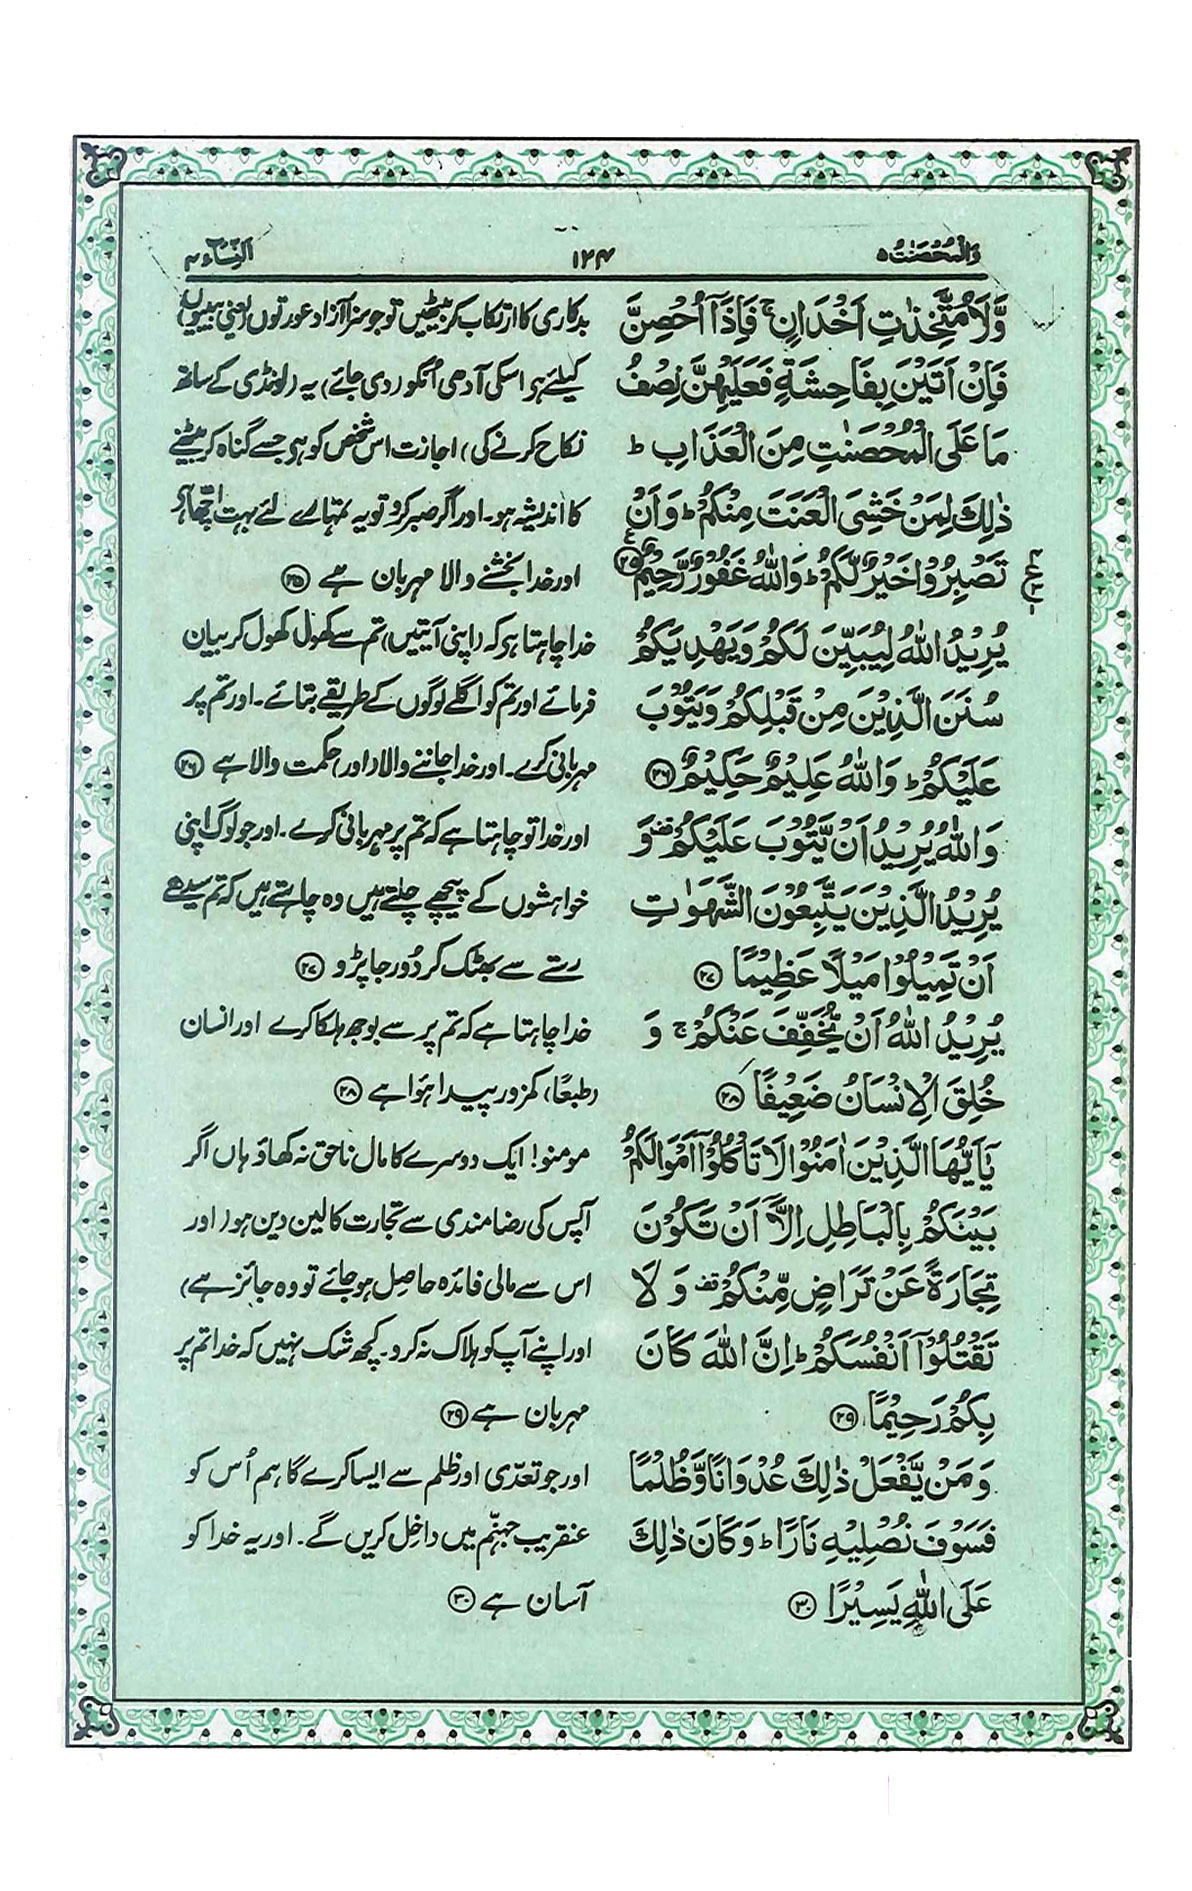 وَالْمُحْصَنٰتُ ۵
۱۲۴
اَلنِّسَآء ۴
وَّلَا مُتَّخِذٰتِ اَخْدَانٍ ۚ فَاِذَآ اُحْصِنَّ
فَاِنْ اَتَيْنَ بِفَاحِشَةٍ فَعَلَيْهِنَّ نِصْفُ
مَا عَلَى الْمُحْصَنٰتِ مِنَ الْعَذَابِ ؕ
ذٰلِكَ لِمَنْ خَشِىَ الْعَنَتَ مِنْكُمْ ؕ وَاَنْ
تَصْبِرُوْا خَيْرٌ لَّكُمْ ؕ وَاللّٰهُ غَفُوْرٌ رَّحِيْمٌ ۲۵
يُرِيْدُ اللّٰهُ لِيُبَيِّنَ لَكُمْ وَيَهْدِيَكُمْ
سُنَنَ الَّذِيْنَ مِنْ قَبْلِكُمْ وَيَتُوْبَ
عَلَيْكُمْ ؕ وَاللّٰهُ عَلِيْمٌ حَكِيْمٌ ۲۶
وَاللّٰهُ يُرِيْدُ اَنْ يَّتُوْبَ عَلَيْكُمْ قف وَ
يُرِيْدُ الَّذِيْنَ يَتَّبِعُوْنَ الشَّهَوٰتِ
اَنْ تَمِيْلُوْا مَيْلًا عَظِيْمًا ۲۷
يُرِيْدُ اللّٰهُ اَنْ يُّخَفِّفَ عَنْكُمْ ۚ وَ
خُلِقَ الْاِنْسَانُ ضَعِيْفًا ۲۸
يٰٓاَيُّهَا الَّذِيْنَ اٰمَنُوْا لَا تَاْكُلُوْٓا اَمْوَالَكُمْ
بَيْنَكُمْ بِالْبَاطِلِ اِلَّآ اَنْ تَكُوْنَ
تِجَارَةً عَنْ تَرَاضٍ مِّنْكُمْ قف وَلَا
تَقْتُلُوْٓا اَنْفُسَكُمْ ؕ اِنَّ اللّٰهَ كَانَ
بِكُمْ رَحِيْمًا ۲۹
وَمَنْ يَّفْعَلْ ذٰلِكَ عُدْوَانًا وَّظُلْمًا
فَسَوْفَ نُصْلِيْهِ نَارًا ؕ وَكَانَ ذٰلِكَ
عَلَى اللّٰهِ يَسِيْرًا ۳۰
بدکاری کا ارتکاب کر بیٹھیں تو جو سزا آزاد عورتوں (یعنی بیبیوں)
کیلئے ہو اسکی آدھی اُنکو (دی جائے) یہ (لونڈی کے ساتھ
نکاح کرنے کی) اجازت اس شخص کو ہی جسے گناہ کر بیٹھنے
کا اندیشہ ہو۔ اور اگر صبر کرو تو یہ تمہارے لئے بہت اچھا ہی
اور خدا بخشنے والا مہربان ہے ۲۵
خدا چاہتا ہی کہ (اپنی آیتیں) تم سے کھول کھول کر بیان
فرمائے اور تم کو اگلے لوگوں کے طریقے بتائے۔ اور تم پر
مہربانی کرے۔ اور خدا جاننے والا (اور) حکمت والا ہے ۲۶
اور خدا تو چاہتا ہے کہ تم پر مہربانی کرے۔ اور جو لوگ اپنی
خواہشوں کے پیچھے چلتے ہیں وہ چاہتے ہیں کہ تم سیدھے
رستے سے بھٹک کر دُور جا پڑو ۲۷
خدا چاہتا ہے کہ تم پر سے بوجھ ہلکا کرے اور انسان
(طبعًا) کمزور پیدا ہوا ہے ۲۸
مومنو! ایک دوسرے کا مال ناحق نہ کھاؤ ہاں اگر
آپس کی رضامندی سے تجارت کا لین دین ہو (اور
اس سے مالی فائدہ حاصل ہو جائے تو وہ جائز ہے)
اور اپنے آپ کو ہلاک نہ کرو۔ کچھ شک نہیں کہ خدا تم پر
مہربان ہے ۲۹
اور جو تعدّی اور ظلم سے ایسا کرے گا ہم اُس کو
عنقریب جہنّم میں داخل کریں گے۔ اور یہ خدا کو
آسان ہے ۳۰